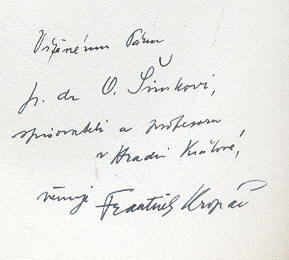 Váženému Pánu
p. dr. O. Šimkovi,
spisovateli a profesoru
v Hradci Králové,
věnuje František Kropáč